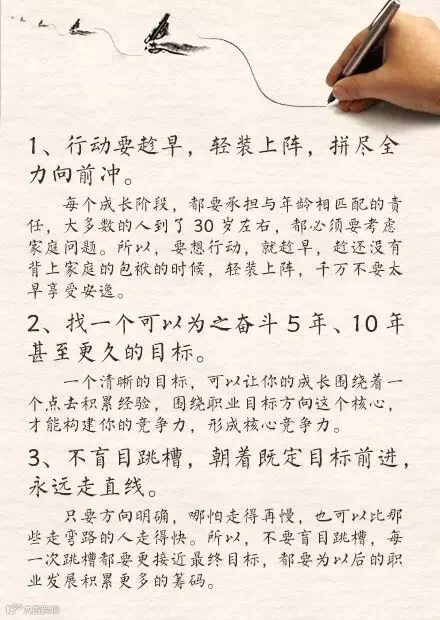 1、行动要趁早，轻装上阵，拼尽全
力向前冲。
每个成长阶段，都要承担与年龄相匹配的责
任，大多数的人到了 30 岁左右，都必须要考虑
家庭问题。所以，要想行动，就趁早，趁还没有
背上家庭的包袱的时候，轻装上阵，千万不要太
早享受安逸。
2、找一个可以为之奋斗 5 年、10 年
甚至更久的目标。
一个清晰的目标，可以让你的成长围绕着一
个点去积累经验，围绕职业目标方向这个核心，
才能构建你的竞争力，形成核心竞争力。
3、不盲目跳槽，朝着既定目标前进，
永远走直线。
只要方向明确，哪怕走得再慢，也可以比那
些走弯路的人走得快。所以，不要盲目跳槽，每
一次跳槽都要更接近最终目标，都要为以后的职
业发展积累更多的筹码。